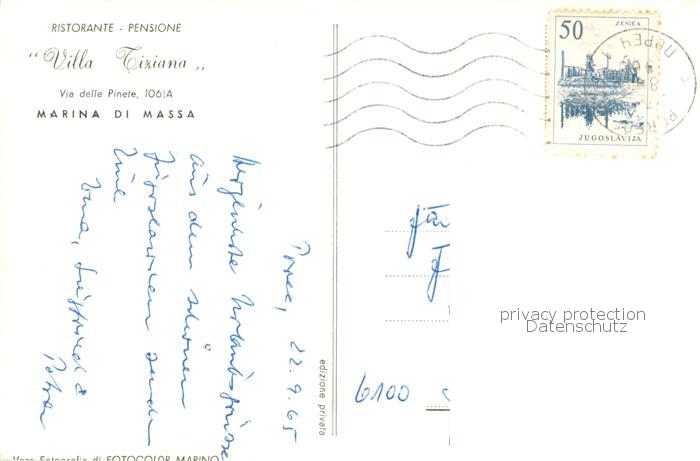 RISTORANTE - PENSIONE
"Villa Tiziana"
Via delle Pinete, 106|A
MARINA DI MASSA
Porec, 22.9.65
Herzlichste Urlaubsgrüsse
aus dem schönen
Jugoslawien senden
Ihre
Irma, Siegfried &
Petra
edizione privata
Vera Fotografia di FOTOCOLOR MARINO
50
ZENICA
JUGOSLAVIJA
ПОРЕЧ
6100
privacy protection
Datenschutz